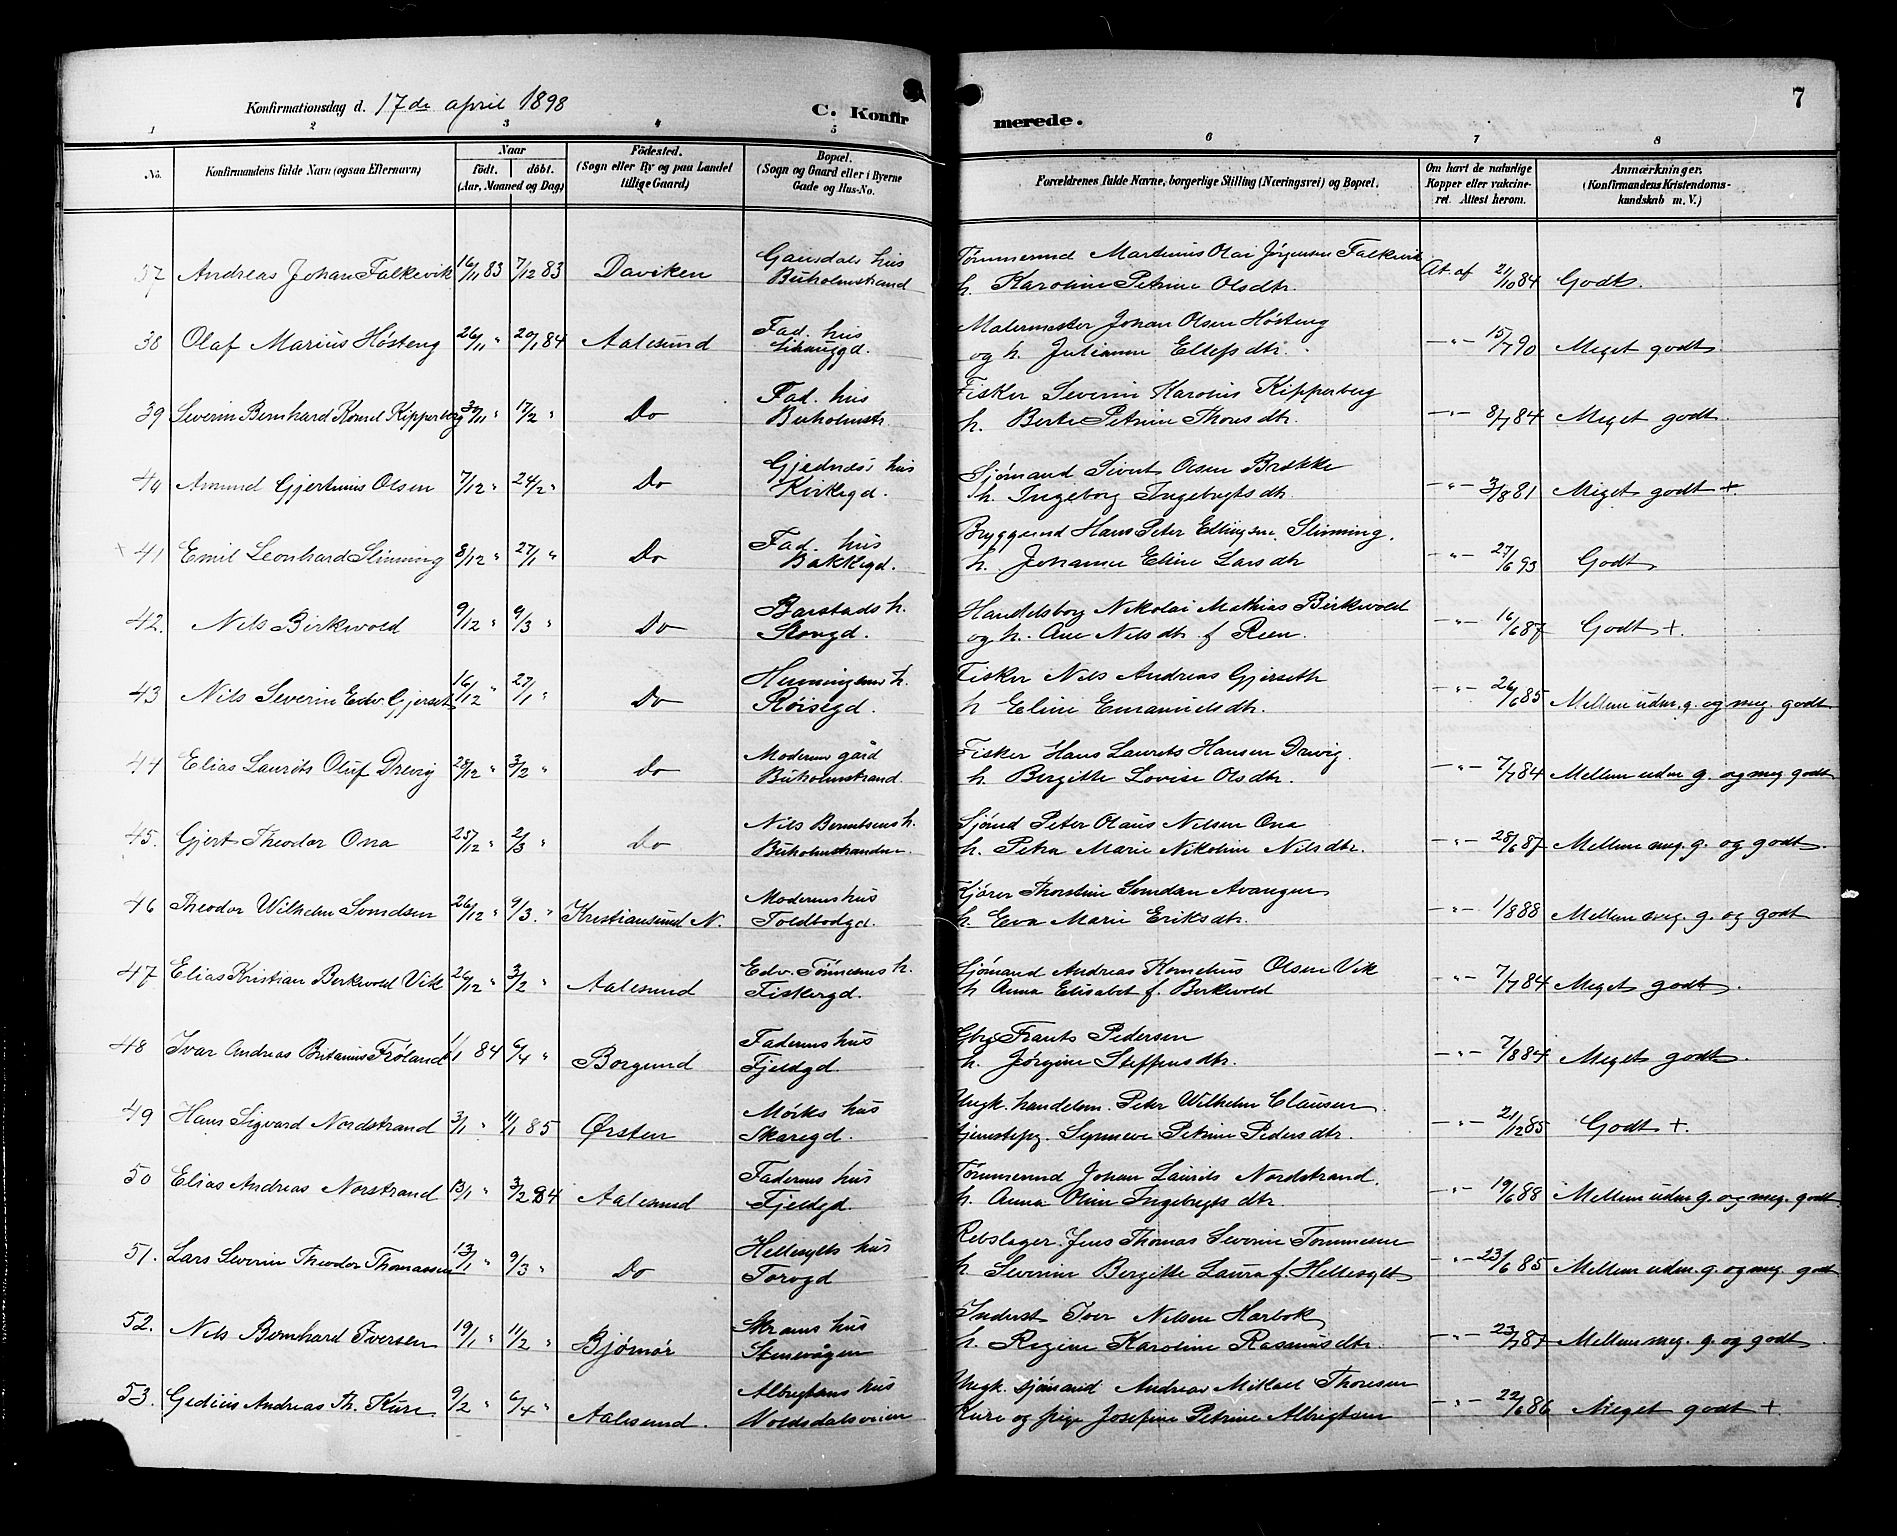 Konfirmationsdag d. 17de april 1898
C. Konfirmerede.
7
1 2 3 4 5 6 7 8
No. Konfirmandens fulde Navn (ogsaa Efternavn) Naar født. døbt. (Aar, Maaned og Dag) Fødested. (Sogn eller By og paa Landet tillige Gaard) Bopæl. (Sogn og Gaard eller i Byerne Gade og Hus-No. Forældrenes fulde Navne, borgerlige Stilling (Næringsvei) og Bopæl. Om havt de naturlige Kopper eller vakcineret. Attest herom. Anmærkninger. (Konfirmandens Kristendomskundskab m. V.)
37 Andreas Johan Falkevik 16/11 83 7/12 83 Daviken hus Buholmstrand
Martinus Olai Jørgensen Falkevik h. Karoline Petrine Olsdtr. At. af 21/10 84 Godt.
38 Olaf Marius Høsteng 26/11 " 20/1 84 Aalesund Fad. hus
Malermester Johan Olsen Høsteng og h. Julianne dtr. -"- 15/7 90 Meget godt
39 Severin Bernhard Konrd Kipperberg 30/11 " 17/2 " Do Fad. hus Buholmstr
Fisker Severin Karolus Kipperberg h. Berte Petrine Thorsdtr. -"- 8/7 84 Meget godt.
40 Gjertinius Olsen 7/12 " 24/2 " Do hus Kirkegd.
Sjømand Sivert Olsen Brække h. Ingeborg Ingebrigtsdtr. -"- 3/8 81 Meget godt +.
× 41 Emil Leonhard Slinning 8/12 " 27/1 " Do Fad. hus Bakkegd.
Hans Peter Ellingsen Slinning. h. Johanne Eline Larsdtr -"- 27/6 93 Godt
42. Nils Birkevold 9/12 " 9/3 " Do Barstads h. Skovgd.
Handelsborg Nikolai Mathias Birkevold og h. Ane Nilsdtr. f. Reen. -"- 16/6 87 Godt +.
43 Nils Severin Edv. Gjerset 16/12 " 27/1 " Do Henningsens h. Røisegd.
Fisker Nils Andreas Gjerseth h Eline Emanuelsdtr. -"- 26/6 85 Mellem udm. g. og meg. godt
44 Elias Laurits Oluf Drevig 28/12 " 3/2 " Do Moderens gård Buholmstrand.
Fisker Hans Laurits Hansen Drevig. h. Bergitte Lovise Olsdtr. -"- 7/7 84 Mellem udm g. og meg godt
45. Gjert Theodor Ona 25/12 " 2/3 " Do Nils Berntsens h. Buholmstranden
Sjømd Peter Olaus Nilsen Ona h. Petra Marie Nikoline Nilsdtr. -"- 28/6 87 Mellem meg. g. og godt.
46 Theodor Wilhelm Svendsen 26/12 " 9/3. " Kristiansund N. Moderens hus Toldbodgd.
Kjører h. Eva Marie Eriksdtr. -"- 1/8 88 Mellem meg. g. og godt
47 Elias Kristian Berkvold Vik 26/12 " 3/2 " Aalesund Edv. Tønnesens h. Fiskergd.
Sjømand Andreas Kornelius Olsen Vik h Anna Elisabet f. Berkvold -"- 7/7 84 Meget godt.
48 Ivar Andreas Britanius Frøland 1/1 84 6/4 " Borgund Faderens hus Fjeldgd
Gbr Frants Pedersen h. Jørgine Steffensdtr. -"- 7/8 84 Meget godt.
49 Hans Sigvard Nordstrand 3/1 " 11/1 85 Ørsten Mørks hus Skaregd.
Ungk. handelsm. Peter Wilhelm Clausen. tjenestepg. Synneve Petrine Pedersdtr. -"- 21/12 85 Godt +.
50 Elias Andreas Norstrand 13/1 " 3/2 84 Aalesund Faderens hus Fjeldgd.
Tømmermd Johan Laurits Nordstrand. h. Anna Oline Ingebrigtsdtr. -"- 19/6 88 Mellem udm g. og meg. godt
51. Lars Severin Theodor Thomassen 13/1 " 9/3 " Do Hellesylts hus Torvgd
Rebslager. Jens Thomas Severin Tommesen h. Severine Bergitte Laura f. Hellesylt -"- 23/6 85 Mellem udm. g. og meg. godt
52. Nils Bernhard Iversen 19/1 " 11/2 " Bjørnør Skrams hus Stenevågen
Inderst Iver Nilsen Harbok h. Regine Karoline Rasmusdtr. -"- 23/7 87 Mellem meg. g. og godt.
53. Gedius Andreas Th. Kure. 9/2 " 6/4 " Aalesund. Albregtsens hus Voldsdalsveien
Ungk. sjømand Andreas Mikael Thoresen Kure og pige Josefine Petrine Albrigtsen -"- 22/6 86 Meget godt +